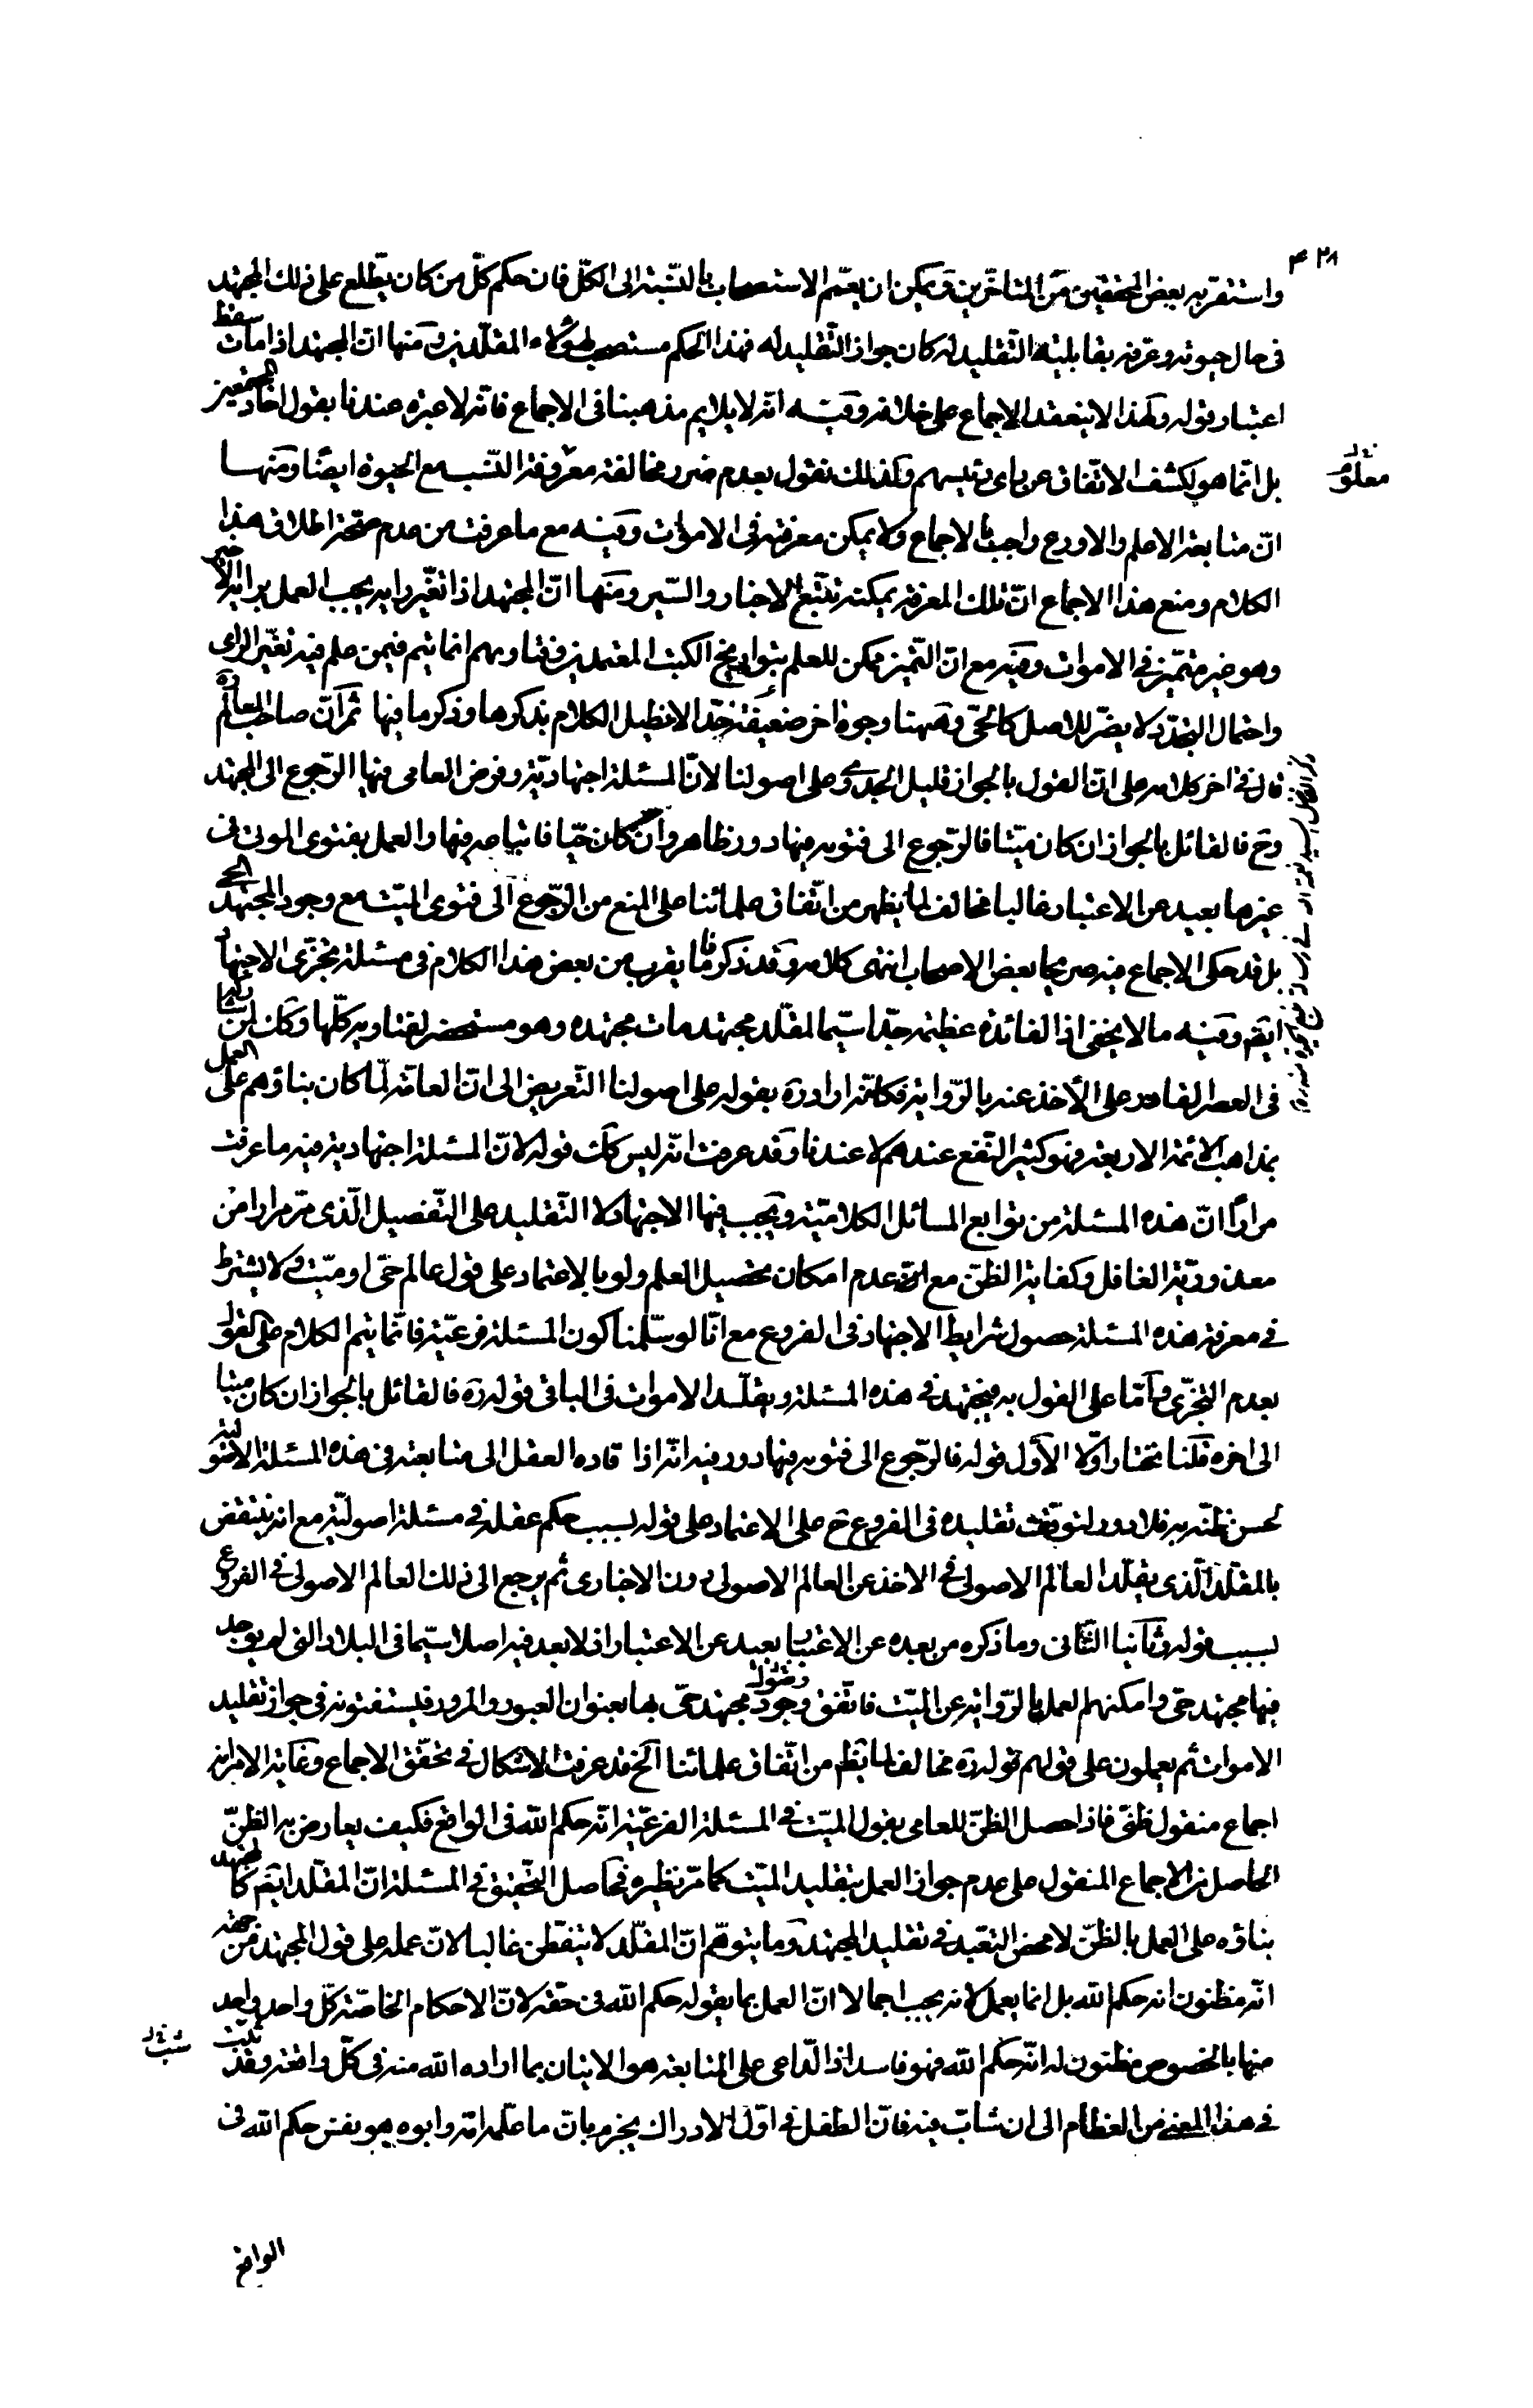 ۴۲۸
واستقربه بعض المحققین من المتاخّرین ویمکن ان یعمّم الاستصحاب بالنّسبة الی الکلّ فان حکم کلّ من کان یطّلع علی ذلک المجتهد
فی حال حیوته وعرفه بقابلیّة التّقلید له کان جواز التّقلید له فهذا الحکم مستصحب لهؤلاء المقلّدین ومنها انّ المجتهد اذا مات سقط
اعتبار قوله ولهذا لا ینعقد الاجماع علی خلافه وفیه انّه لا یلایم مذهبنا فی الاجماع فانّه لا عبرة عندنا بقول احاد المجمعین
بل انّما هو لکشف الاتّفاق عن رای رئیسهم ولذلک نقول بعدم ضرر مخالفة معروف النّسب مع الحیوة ایضًا ومنها
معلوم
انّ متابعة الاعلم والاورع واجب بالاجماع ولا یمکن معرفته فی الاموات وفیه مع ما عرفت من عدم صحّة اطلاق هذا
الکلام ومنع هذا الاجماع انّ تلک المعرفة یمکنه بتتبّع الاخبار والسّیر ومنها انّ المجتهد اذا تغیّر رایه یجب العمل برایه الاخیر
وهو غیر متمیّز فی الاموات وفیه مع انّ التّمیز ممکن للعلم بتواریخ الکتب المعتمدین وفتاویهم انما یتم فیمن علم فیه تغیّر الرای
واحتمال التجدّد لا یضرّ للاصل کالحیّ وههنا وجوه اخر ضعیفة جدّا لا نطیل الکلام بذکرها وذکر ما فیها ثمّ انّ صاحب المعالم ره
قال فی اخر کلامه علی انّ القول بالجواز قلیل الجدوی علی اصولنا لانّ المسئلة اجتهادیّة وفرض العامی فیها الرّجوع الی المجتهد
وح فالقائل بالجواز ان کان میّتا فالرّجوع الی فتویه فیها دور ظاهر وان کان حیّا فاتباعه فیها والعمل بفتوی الموتی فی
غیرها بعید عن الاعتبار غالبا مخالف لما یظهر من اتّفاق علمائنا علی المنع من الرّجوع الی فتوی المیّت مع وجود المجتهد الحی
بل قد حکی الاجماع فیه صریحا بعض الاصحاب انتهی کلامه وقد ذکر ما یقرب من بعض هذا الکلام فی مسئلة تجزّی الاجتهاد
ایضا وفیه ما لا یخفی اذ الفائدة عظیمة جدّا سیّما لمقلّد مجتهد مات مجتهده وهو مستحضر لفتاویه کلّها وکان من
فی العصر القادر علی الأخذ عنه بالرّوایة فکانّه اراد ره بقوله علی اصولنا التّعریض الی انّ العامّة لمّا کان بناؤهم علی العمل
بمذاهب الائمّة الاربعة فهو کثیر النّفع عندهم لا عندنا وقد عرفت انّه لیس کذلک قوله لانّ المسئلة اجتهادیة فیه ما عرفت
مرارًا انّ هذه المسئلة من توابع المسائل الکلامیّة ویجب فیها الاجتهاد لا التّقلید علی التّفصیل الّذی مرّ مرارا من
معذوریّة الغافل وکفایة الظنّ مع عدم امکان تحصیل العلم ولو بالاعتماد علی قول عالم حیّ او میّت ولا یشترط
فی معرفة هذه المسئلة حصول شرایط الاجتهاد فی الفروع مع انّا لو سلّمنا کون المسئلة فرعیّة فانّما یتم الکلام علی القول
بعدم التجزّی وامّا علی القول به فیجتهد فی هذه المسئلة ویقلّد الاموات فی الباقی قوله ره فالقائل بالجواز ان کان میتا
الی اخره قلنا نختار اوّلا الأوّل قوله فالرّجوع الی فتویه فیها دور فیه انّه اذا قاده العقل الی متابعته فی هذه المسئلة الاصولیّة
لحسن ظنّه به فلا دور لتوقّف تقلیده فی الفروع ح علی الاعتماد علی قوله بسبب حکم عقله فی مسئلة اصولیّة مع انه ینتقض
بالمقلّد الّذی یقلّد العالم الاصولی فی الاخذ عن العالم الاصولی دون الاخباری ثم یرجع الی ذلک العالم الاصولی فی الفروع
بسبب قوله وثانیا الثّانی وما ذکره من بعده عن الاعتبار بعید عن الاعتبار اذ لا بعد فیه اصلا سیّما فی البلاد التی لم یوجد
فیها مجتهد حیّ وامکنهم العمل بالرّوایة عن المیّت فاتّفق وجود مجتهد حیّ بها بعنوان العبور والمرور فیستفتونه فی جواز تقلید
الاموات ثم یعملون علی قولهم قوله ره مخالف لما یظهر من اتّفاق علمائنا الخ قد عرفت الاشکال فی تحقّق الاجماع وغایة الامر انه
اجماع منقول ظنّی فاذا حصل الظنّ للعامی بقول المیّت فی المسئلة الفرعیّة انّه حکم اللّه فی الواقع فکیف یعارض به الظنّ
الحاصل من الاجماع المنقول علی عدم جواز العمل بتقلید المیّت کما مرّ نظیره فحاصل التّحقیق فی المسئلة انّ المقلّد ایضا کالمجتهد
بناؤه علی العمل بالظنّ لا محض التعبّد فی تقلید المجتهد وما یتوهّم انّ المقلّد لا یتفطّن غالبا لانّ عمله علی قول المجتهد من جهة
انّه مظنون انه حکم اللّه بل انما یعمل لانه یجب اجمالا انّ العمل بما یقوله حکم اللّه فی حقّه لا انّ الاحکام الخاصّة کلّ واحد واحد
منها بالخصوص مظنون له انّه حکم اللّه فهو فاسد اذ الدّاعی علی المتابعة هو الاتیان بما اراده اللّه منه فی کلّ واقعة وقد ثبت
فی هذا المعنی من الفطام الی ان شابّ فیه فانّ الطفل فی اوّل الادراک یجزم بانّ ما علّمه امّه وابوه هو نفس حکم اللّه فی
الواقع